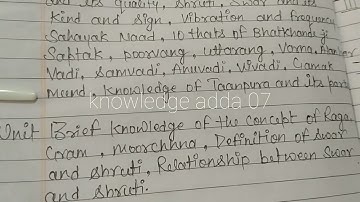 and its quality, Shruti, Swar and its
kind and sign, Vibration and frequency
Sahayak Naad, 10 thats of Bhatkhande ji
Saptak, poorvang, uttarang, Varna,
Vadi, Samvadi, Anuvadi, Vivadi,
Meend, Knowledge of Taanpura and its part
knowledge adda 07
Unit Brief knowledge of the concept of Raga.
Gram, moorchhna, Definition of Swar
and Shruti, Relationship between Swar
and Shruti.